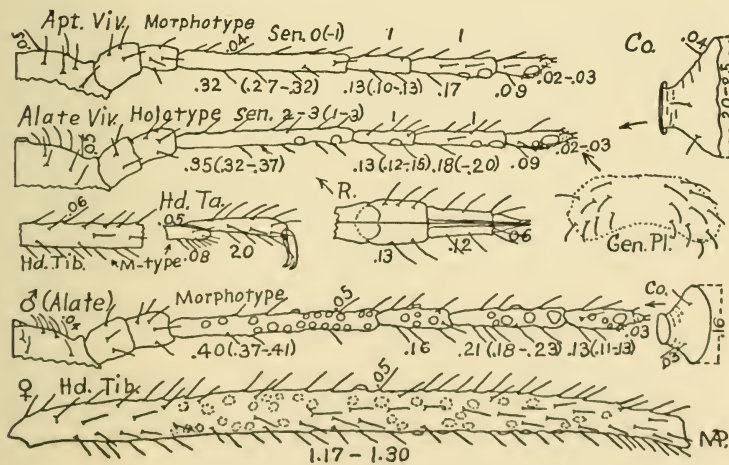 Apt. Viv. Morphotype Sen. 0(-1) 1 1
.05 .04 Co. .04
.32 (.27-.32) .13(.10-.13) .17 .09 .02-.03
.20-.25
Alate Viv. Holotype Sen. 2-3(1-3) 1 1
.05
.35(.32-.37) .13(.12-.15) .18(-.20) .09 .02-.03
R.
.06 Hd. Ta. .05
Hd. Tib. M-type .08 .20 .13 .12 .06 Gen. Pl.
♂ (Alate) Morphotype .05 Co.
.03 .16
.40(.37-.41) .16 .21(.18-.23) .13(.11-.13) .03
♀ Hd. Tib. .05
1.17 - 1.30